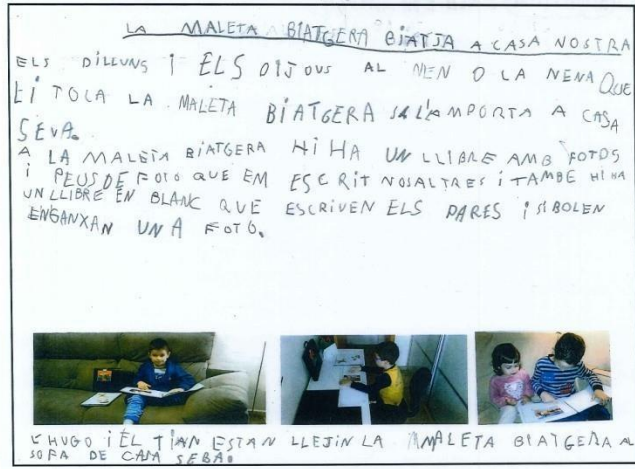 LA MALETA BIATGERA BIATJA A CASA NOSTRA
ELS DILLUNS I ELS DIJOUS AL NEN O LA NENA QUE
LI TOCA LA MALETA BIATGERA SALAMPORTA A CASA
SEVA.
A LA MALETA BIATGERA HI HA UN LLIBRE AMB FOTOS
I PEUS DE FOTO QUE EM ESCRIT NOSALTRES I TAMBE HI HA
UN LLIBRE EN BLANC QUE ESCRIVEN ELS PARES I SI BOLEN
ENGANXAN UNA FOTO.
L'HUGO I ÈL TIAN ESTAN LLEJIN LA MALETA BIATGERA AL
SOFA DE CASA SEBA.